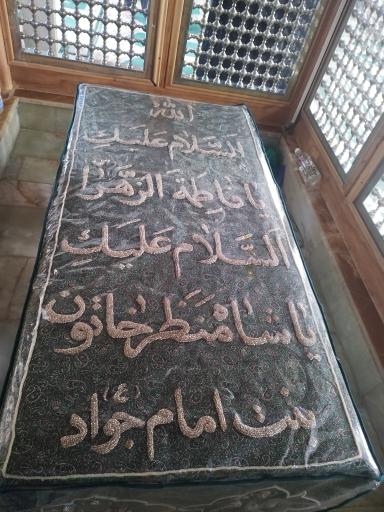 الله
السلام علیک
یا فاطمة الزهرا
السلام علیک
یا شاه منظر خاتون
بنت امام جواد (ع)